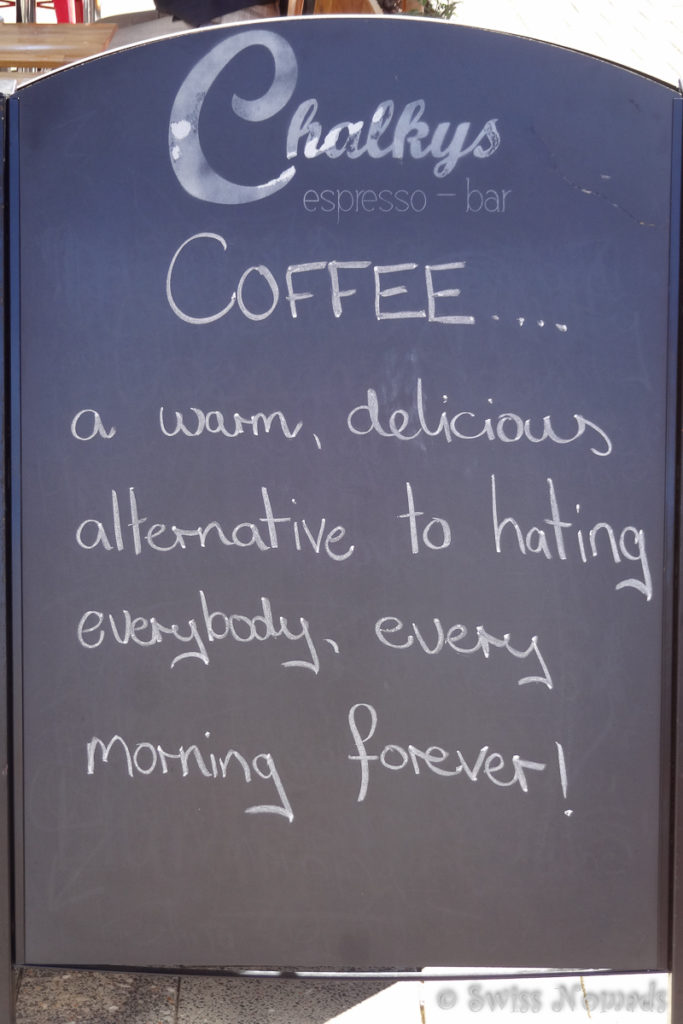 Chalkys
espresso - bar
COFFEE.....
a warm, delicious
alternative to hating
everybody, every
morning forever!
© Swiss Nomads